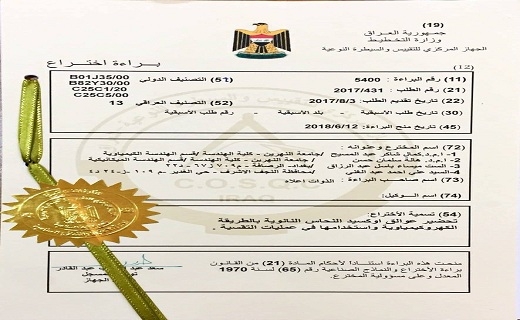 (19)
جمهورية العراق
وزارة التخطيط
الجهاز المركزي للتقييس والسيطرة النوعية
(12)
براءة اختراع
(11) رقم البراءة: 5400
(21) رقم الطلب: 2017/431
(22) تاريخ تقديم الطلب: 2017/8/3
(30) تاريخ طلب الأسبقية - بلد الأسبقية - رقم طلب الأسبقية
(45) تاريخ منح البراءة: 2018/6/12
(51) التصنيف الدولي
B01J35/00
B82Y30/00
C25C1/20
C25C5/00
(52) التصنيف العراقي 13
(72) اسم المخترع وعنوانه:
١- ا.د. كمال شاكر عبد المسيح / جامعة النهرين - كلية الهندسة / قسم الهندسة الكيمياوية
٢- ا.م.د. هالة سلمان حسن / جامعة النهرين - كلية الهندسة / قسم الهندسة الميكانيكية
٣- الست ميساء باسل عبد الرزاق / بغداد- الرصافة -
٤- السيد علي احمد عبد الغني / محافظة النجف الاشرف - حي الغدير -
(73) اسم صاحب البراءة: الذوات اعلاه
(74) اسم الوكيل:
(54) تسمية الأختراع:
تحضير عوالق اوكسيد النحاس النانوية بالطريقة
الكهروكيمياوية واستخدامها في عمليات التقسية .
منحت هذه البراءة استناداً لأحكام المادة (21) من القانون
براءة الأختراع والنماذج الصناعية رقم (65) لسنة 1970
المعدل وعلى مسؤولية المخترع.
سعد عبد عبد القادر
المسجل
الجهاز
C.O.S.Q.C
IRAQ